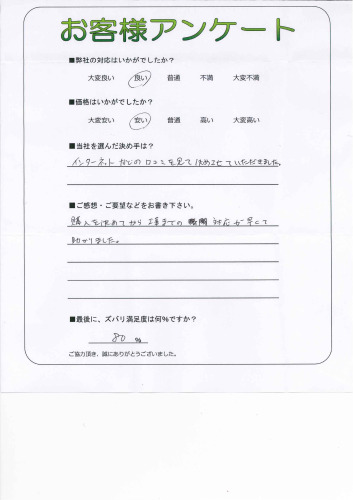 お客様アンケート
■弊社の対応はいかがでしたか？
大変良い 良い 普通 不満 大変不満
■価格はいかがでしたか？
大変安い 安い 普通 高い 大変高い
■当社を選んだ決め手は？
インターネットなどの口コミを見て決めさせていただきました。
■ご感想・ご要望などをお書き下さい。
購入を決めてから工事までの期間 対応が早くて
助かりました。
■最後に、ズバリ満足度は何%ですか？
80 %
ご協力頂き、誠にありがとうございました。